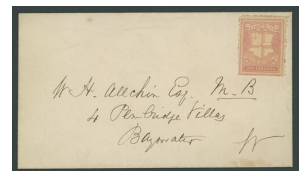 W. H. Allchin Esq. M-B
4 Pembridge Villas
Bayswater W